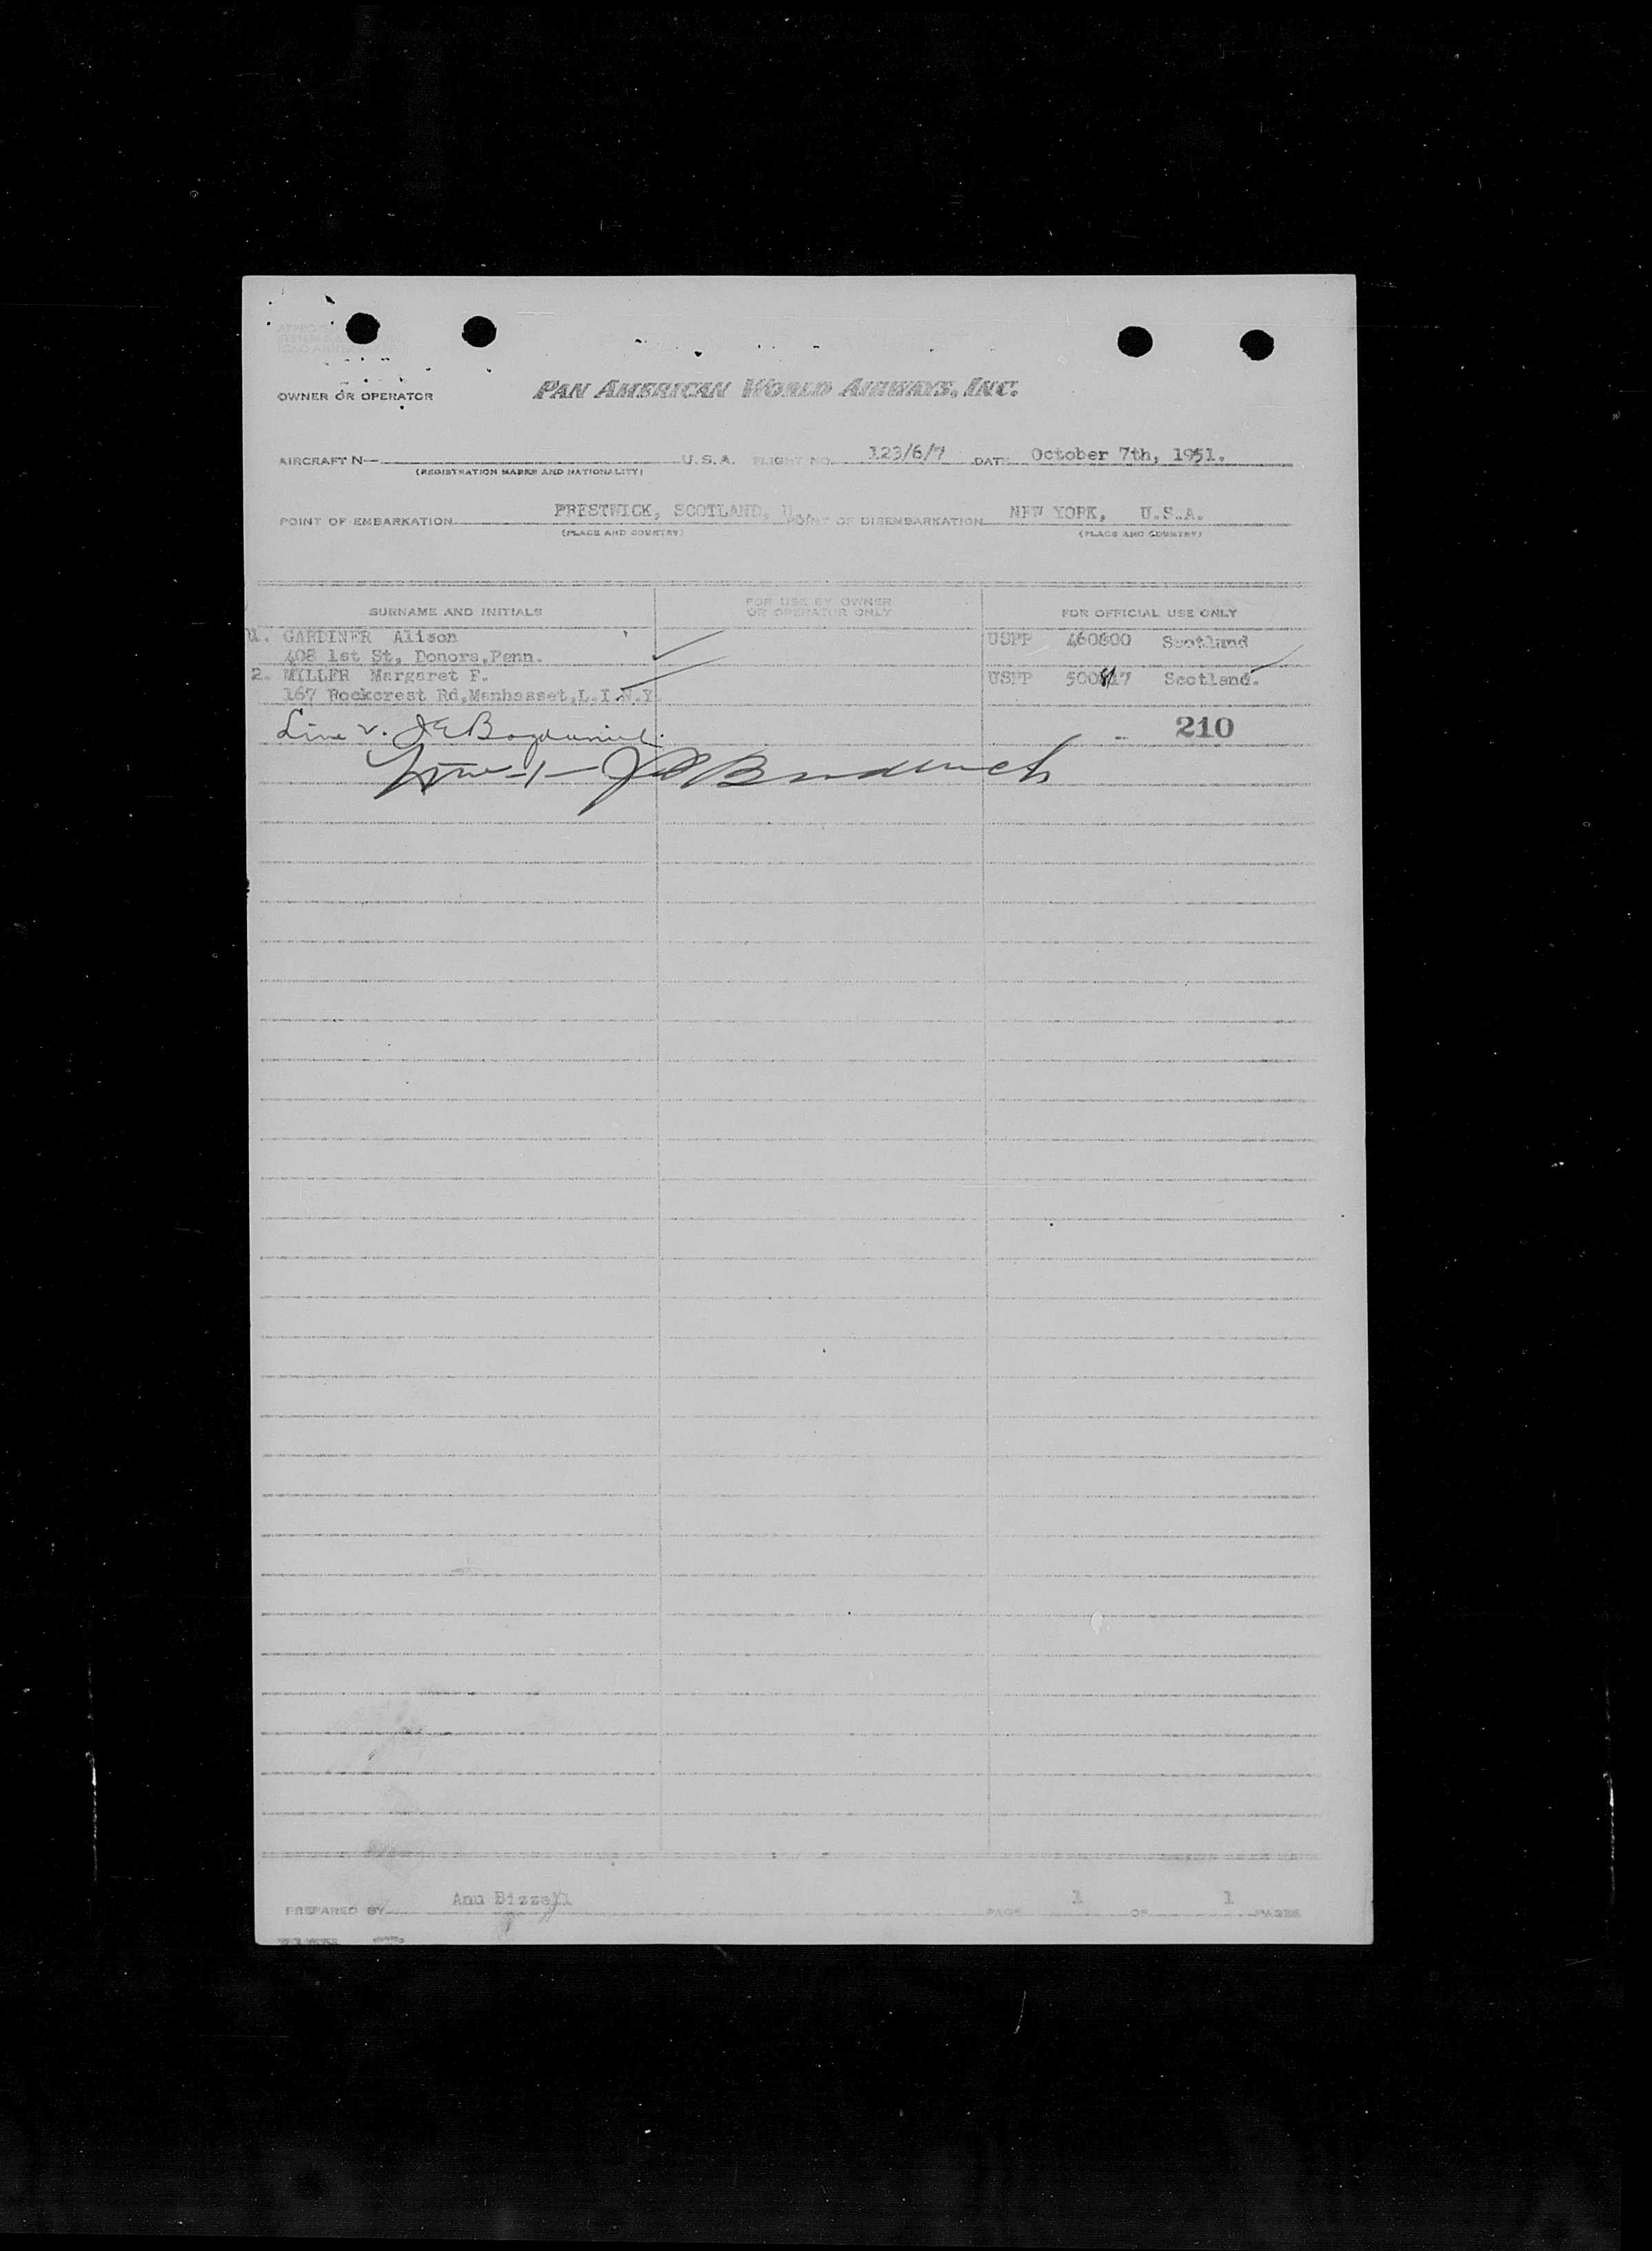 OWNER OR OPERATOR PAN AMERICAN WORLD AIRWAYS, INC.
AIRCRAFT N— U.S.A. FLIGHT NO. 123/6/7 DATE October 7th, 1951.
(REGISTRATION MARKS AND NATIONALITY)
POINT OF EMBARKATION PRESTWICK, SCOTLAND, U. POINT OF DISEMBARKATION NEW YORK, U.S.A.
(PLACE AND COUNTRY) (PLACE AND COUNTRY)
SURNAME AND INITIALS FOR USE BY OWNER OR OPERATOR ONLY FOR OFFICIAL USE ONLY
1. GARDINER Alison USPP 460800 Scotland
408 1st St, Donora,Penn.
2. MILLER Margaret F. USPP 500 17 Scotland.
167 Rockcrest Rd,Manhasset,L.I.N.Y.
Line 2.
210
Line -1-
PREPARED BY Ann Bizzell PAGE 1 OF 1 PAGES